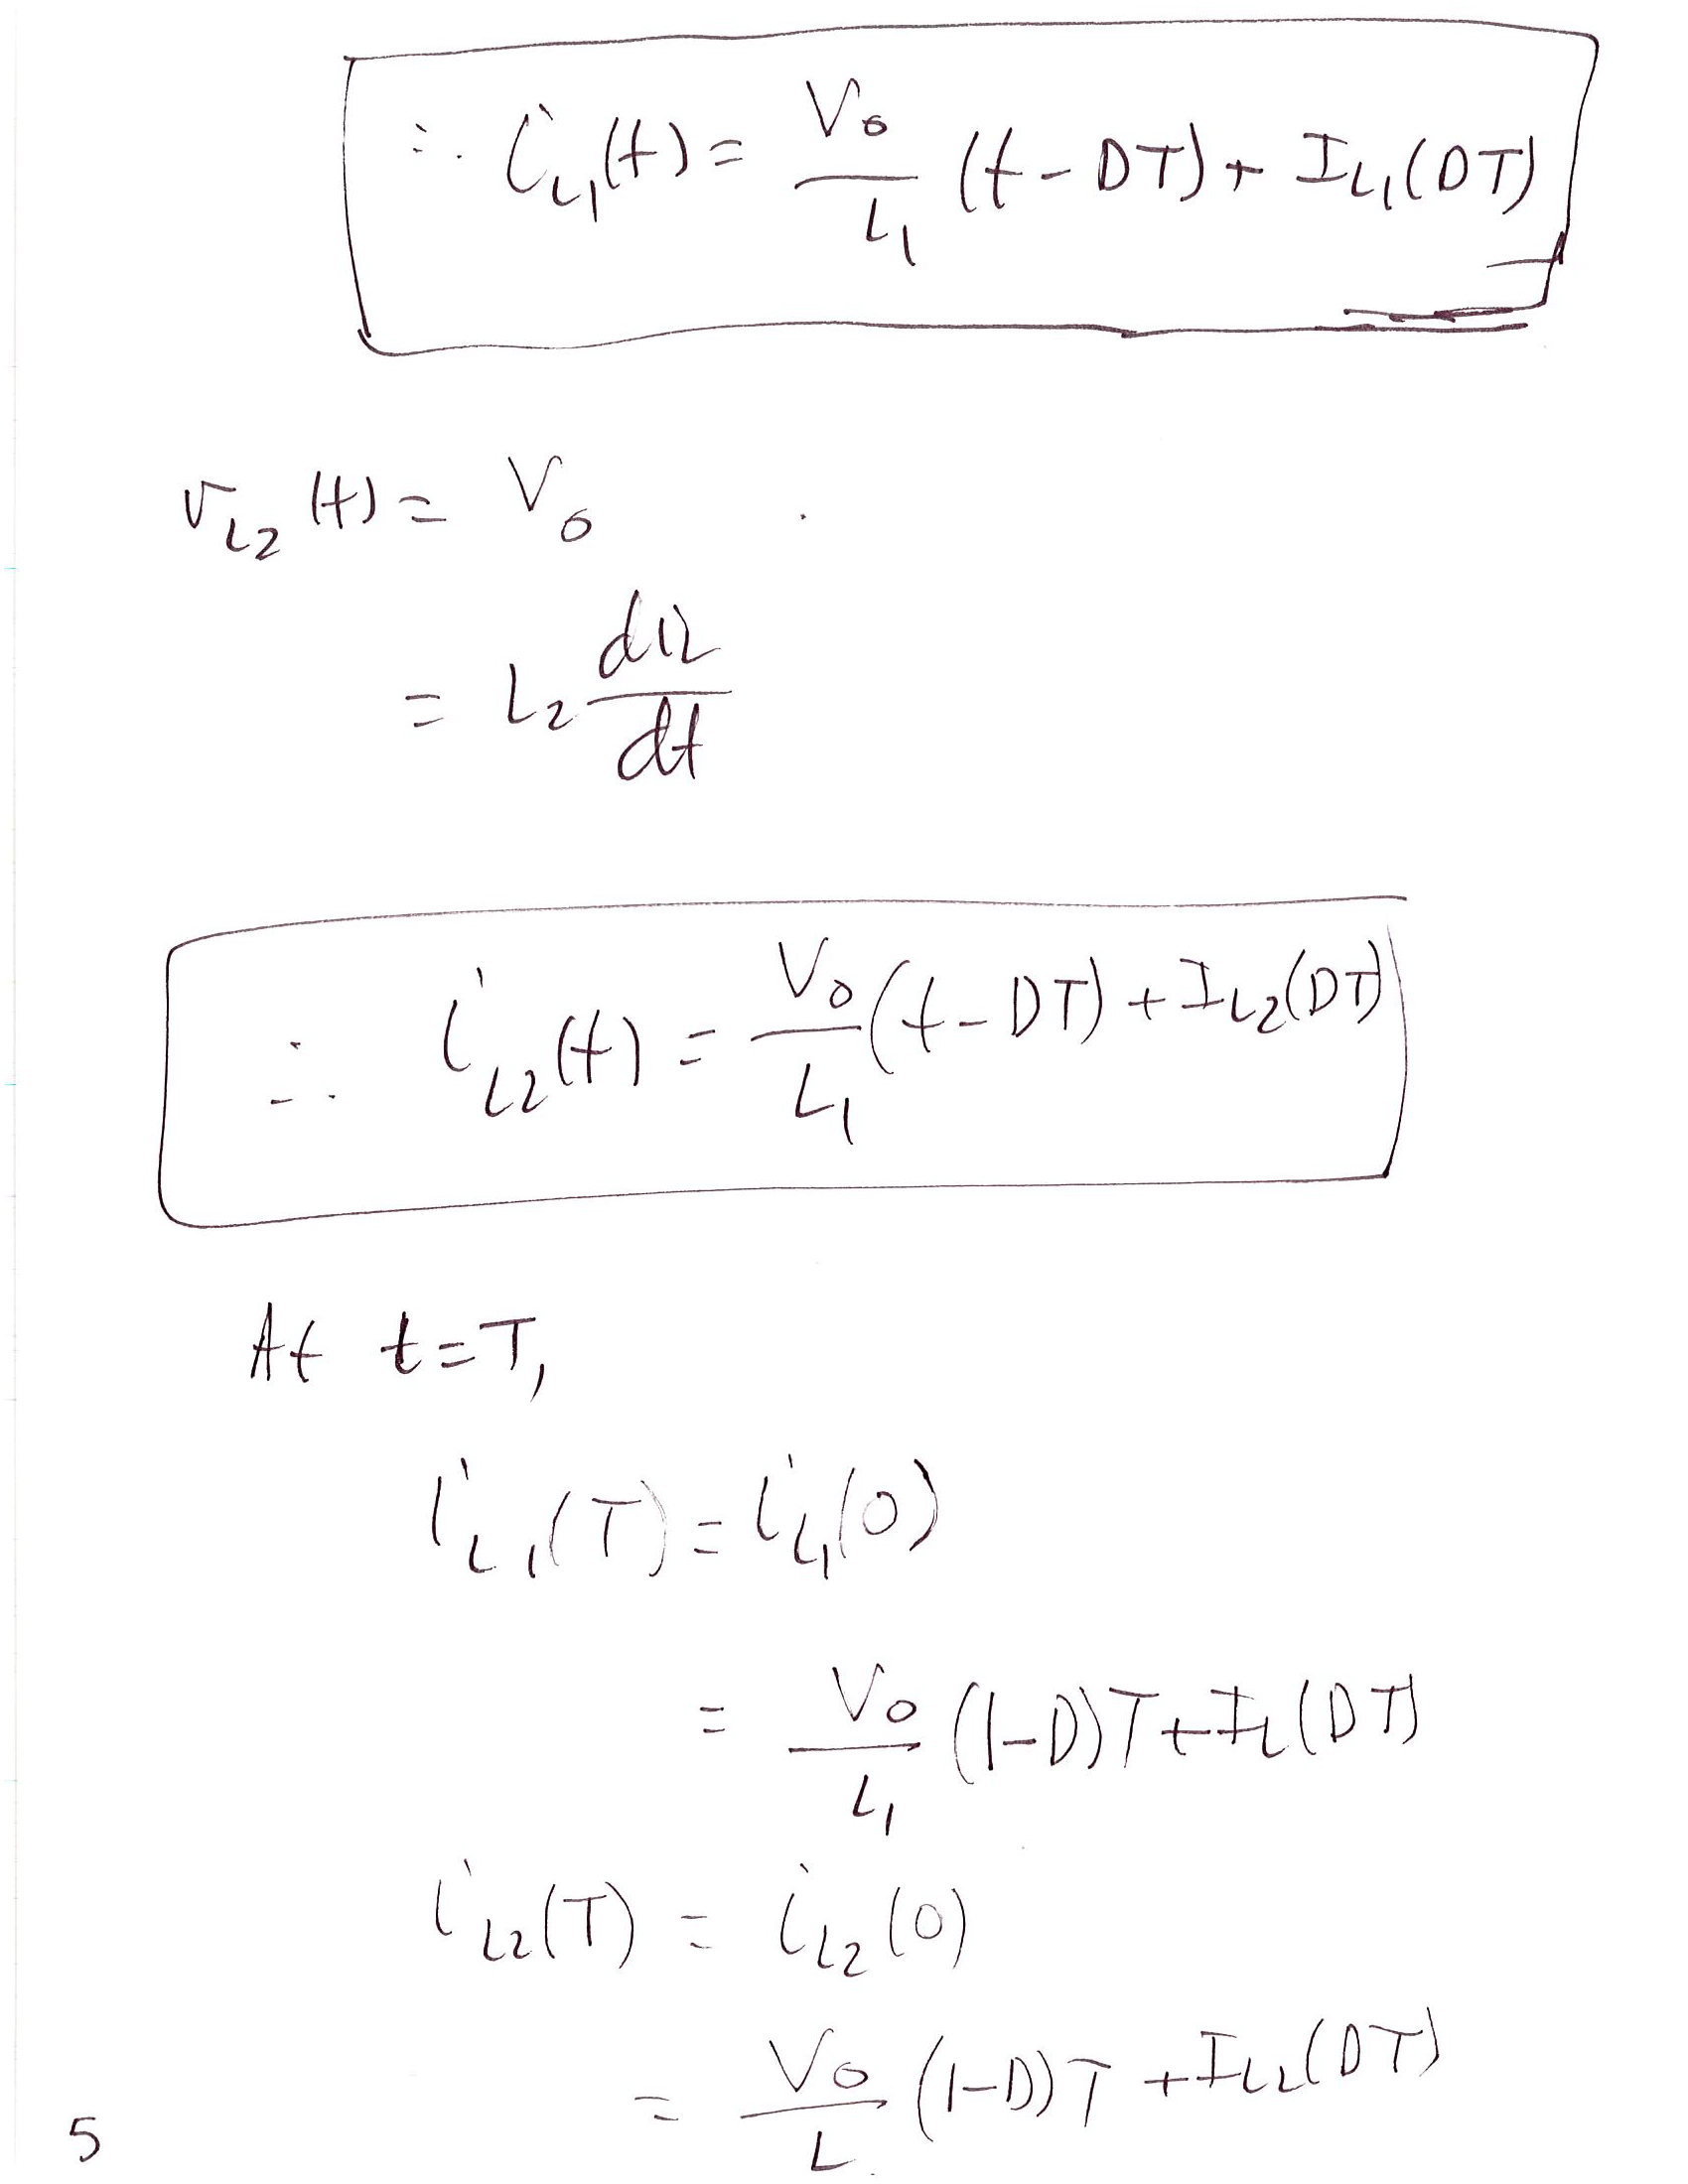 ∴ i_L1(t) = V_o/L_1 (t - DT) + I_L1(DT)
v_L2(t) = V_o
= L_2 diL/dt
∴ i_L2(t) = V_o/L_1 (t - DT) + I_L2(DT)
At t=T,
i_L1(T) = i_L1(0)
= V_o/L_1 (1-D)T + I_L(DT)
i_L2(T) = i_L2(0)
= V_o/L (1-D)T + I_L2(DT)
5